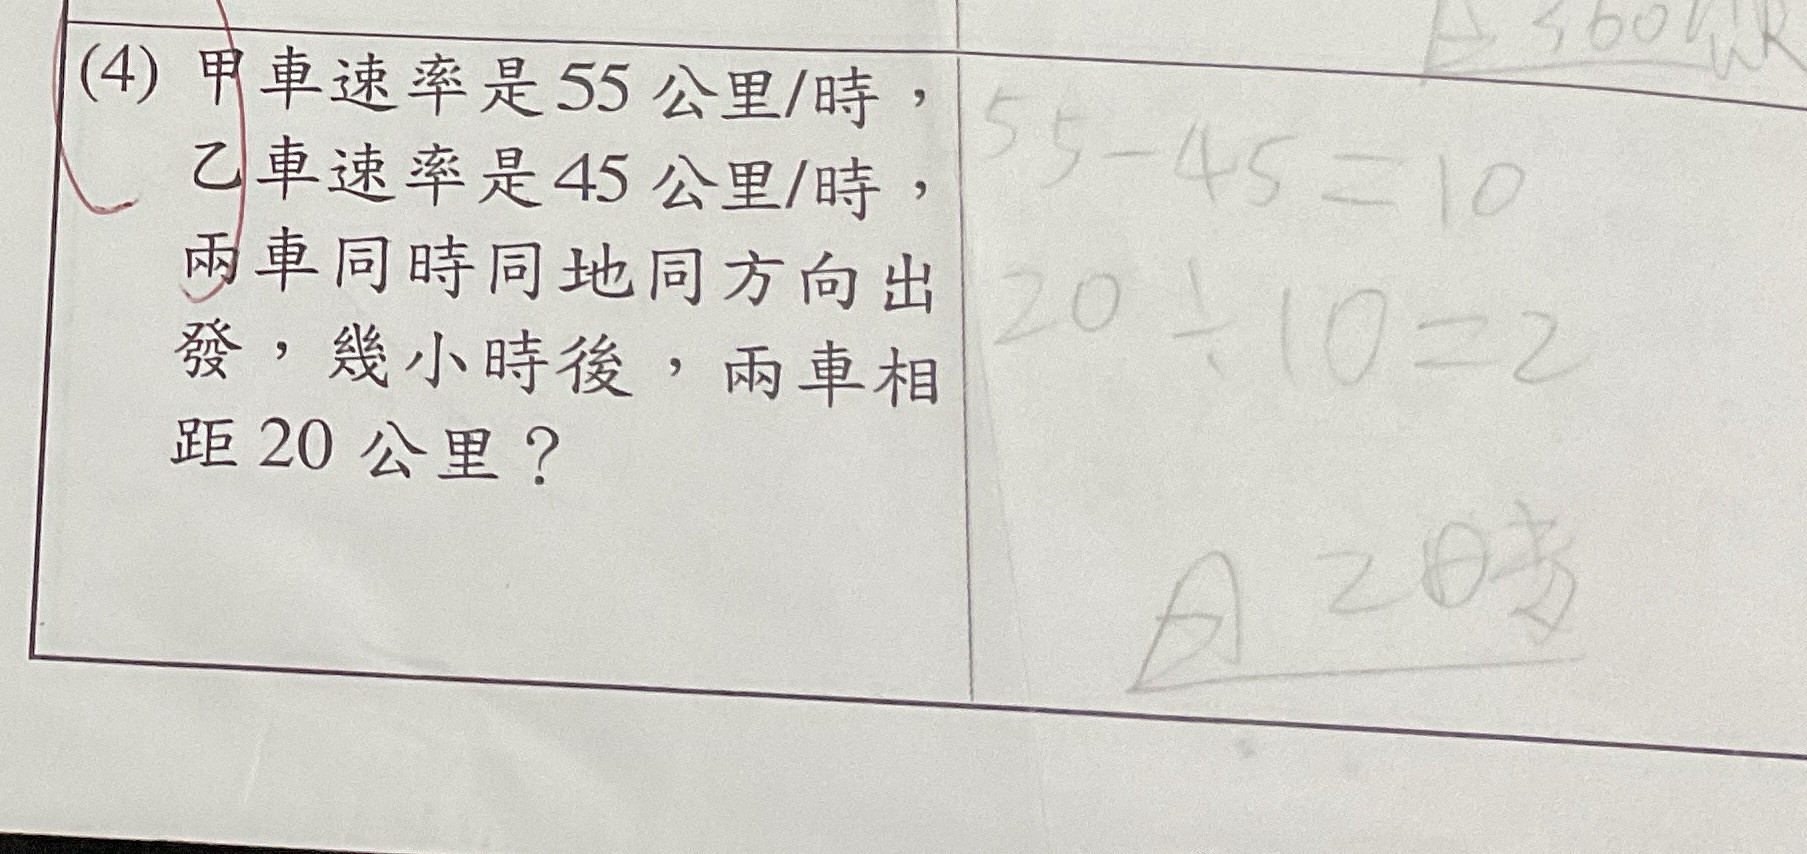 A 360
(4) 甲車速率是55公里/時，
乙車速率是45公里/時，
兩車同時同地同方向出
發，幾小時後，兩車相
距20公里？
55-45=10
20÷10=2
A 2時